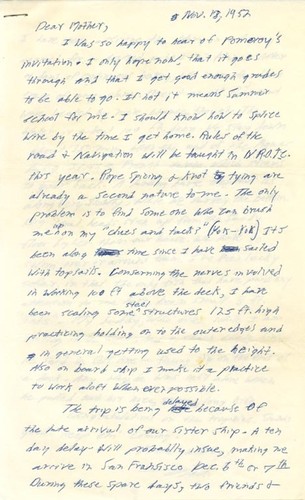 Nov. 17, 1952
Dear Mother,
I was so happy to hear of Pomeroy's
invitation. I only hope now, that it goes
through and that I get good enough grades
to be able to go. If not it means Summer
school for me. I should know how to splice
wire by the time I get home. Rules of the
road & Navigation will be taught in N.R.O.T.C.
this year. Rope Spicing & knot tying are
already a second nature to me. The only
problem is to find some one who can brush
me up on my "clues and tacks" (Yuk-Yuk) It's
been along time since I have sailed
with topsails. Conserning the nerves involved
in working 100 ft above the deck, I have
been scaling some steel structures 125 ft. high
practicing holding on to the outer edges and
in general getting used to the height.
Also on board ship I make it a practice
to work aloft when ever possible.
The trip is being delayed because of
the late arrival of our sister ship. A ten
day delay will probablly insue, making me
arrive in San Fransisco Dec. 6th or 7th
During these spare days, two friends &